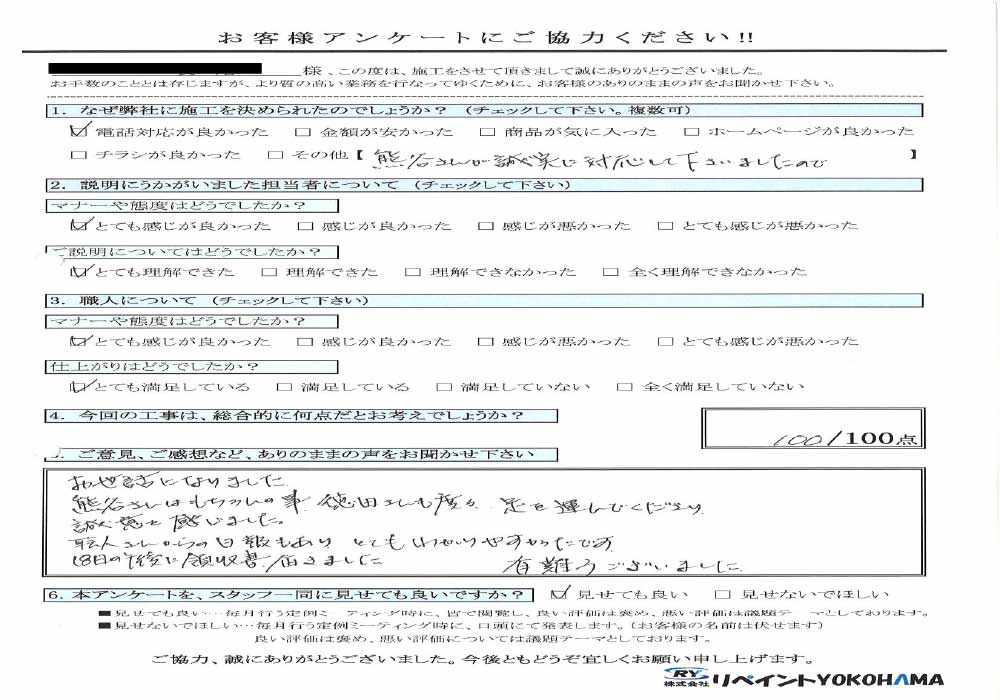 お客様アンケートにご協力ください!!
様、この度は、施工をさせて頂きまして誠にありがとうございました。
お手数のこととは存じますが、より質の高い業務を行なってゆくために、お客様のありのままの声をお聞かせ下さい。
1. なぜ弊社に施工を決められたのでしょうか？（チェックして下さい。複数可）
☑ 電話対応が良かった □ 金額が安かった □ 商品が気に入った □ ホームページが良かった
□ チラシが良かった □ その他【 熊谷さんが誠実に対応して下さいましたので 】
2. 説明にうかがいました担当者について（チェックして下さい）
マナーや態度はどうでしたか？
☑ とても感じが良かった □ 感じが良かった □ 感じが悪かった □ とても感じが悪かった
ご説明についてはどうでしたか？
☑ とても理解できた □ 理解できた □ 理解できなかった □ 全く理解できなかった
3. 職人について（チェックして下さい）
マナーや態度はどうでしたか？
☑ とても感じが良かった □ 感じが良かった □ 感じが悪かった □ とても感じが悪かった
仕上がりはどうでしたか？
☑ とても満足している □ 満足している □ 満足していない □ 全く満足していない
4. 今回の工事は、総合的に何点だとお考えでしょうか？
100/100点
. ご意見、ご感想など、ありのままの声をお聞かせ下さい
お世話になりました
熊谷さんはもちろんの事 徳田さんも度々、足を運んでくださり
誠意を感じました。
職人さんからの日報もあり とてもわかりやすかったです
18日の午後に領収書届きました 有難うございました
6. 本アンケートを、スタッフ一同に見せても良いですか？ ☑ 見せても良い □ 見せないでほしい
■見せても良い…毎月行う定例ミーティング時に、皆で閲覧し、良い評価は褒め、悪い評価は議題テーマとしております。
■見せないでほしい…毎月行う定例ミーティング時に、口頭にて発表します。（お客様の名前は伏せます）
良い評価は褒め、悪い評価については議題テーマとしております。
ご協力、誠にありがとうございました。今後ともどうぞ宜しくお願い申し上げます。
RY 株式会社 リペイントYOKOHAMA